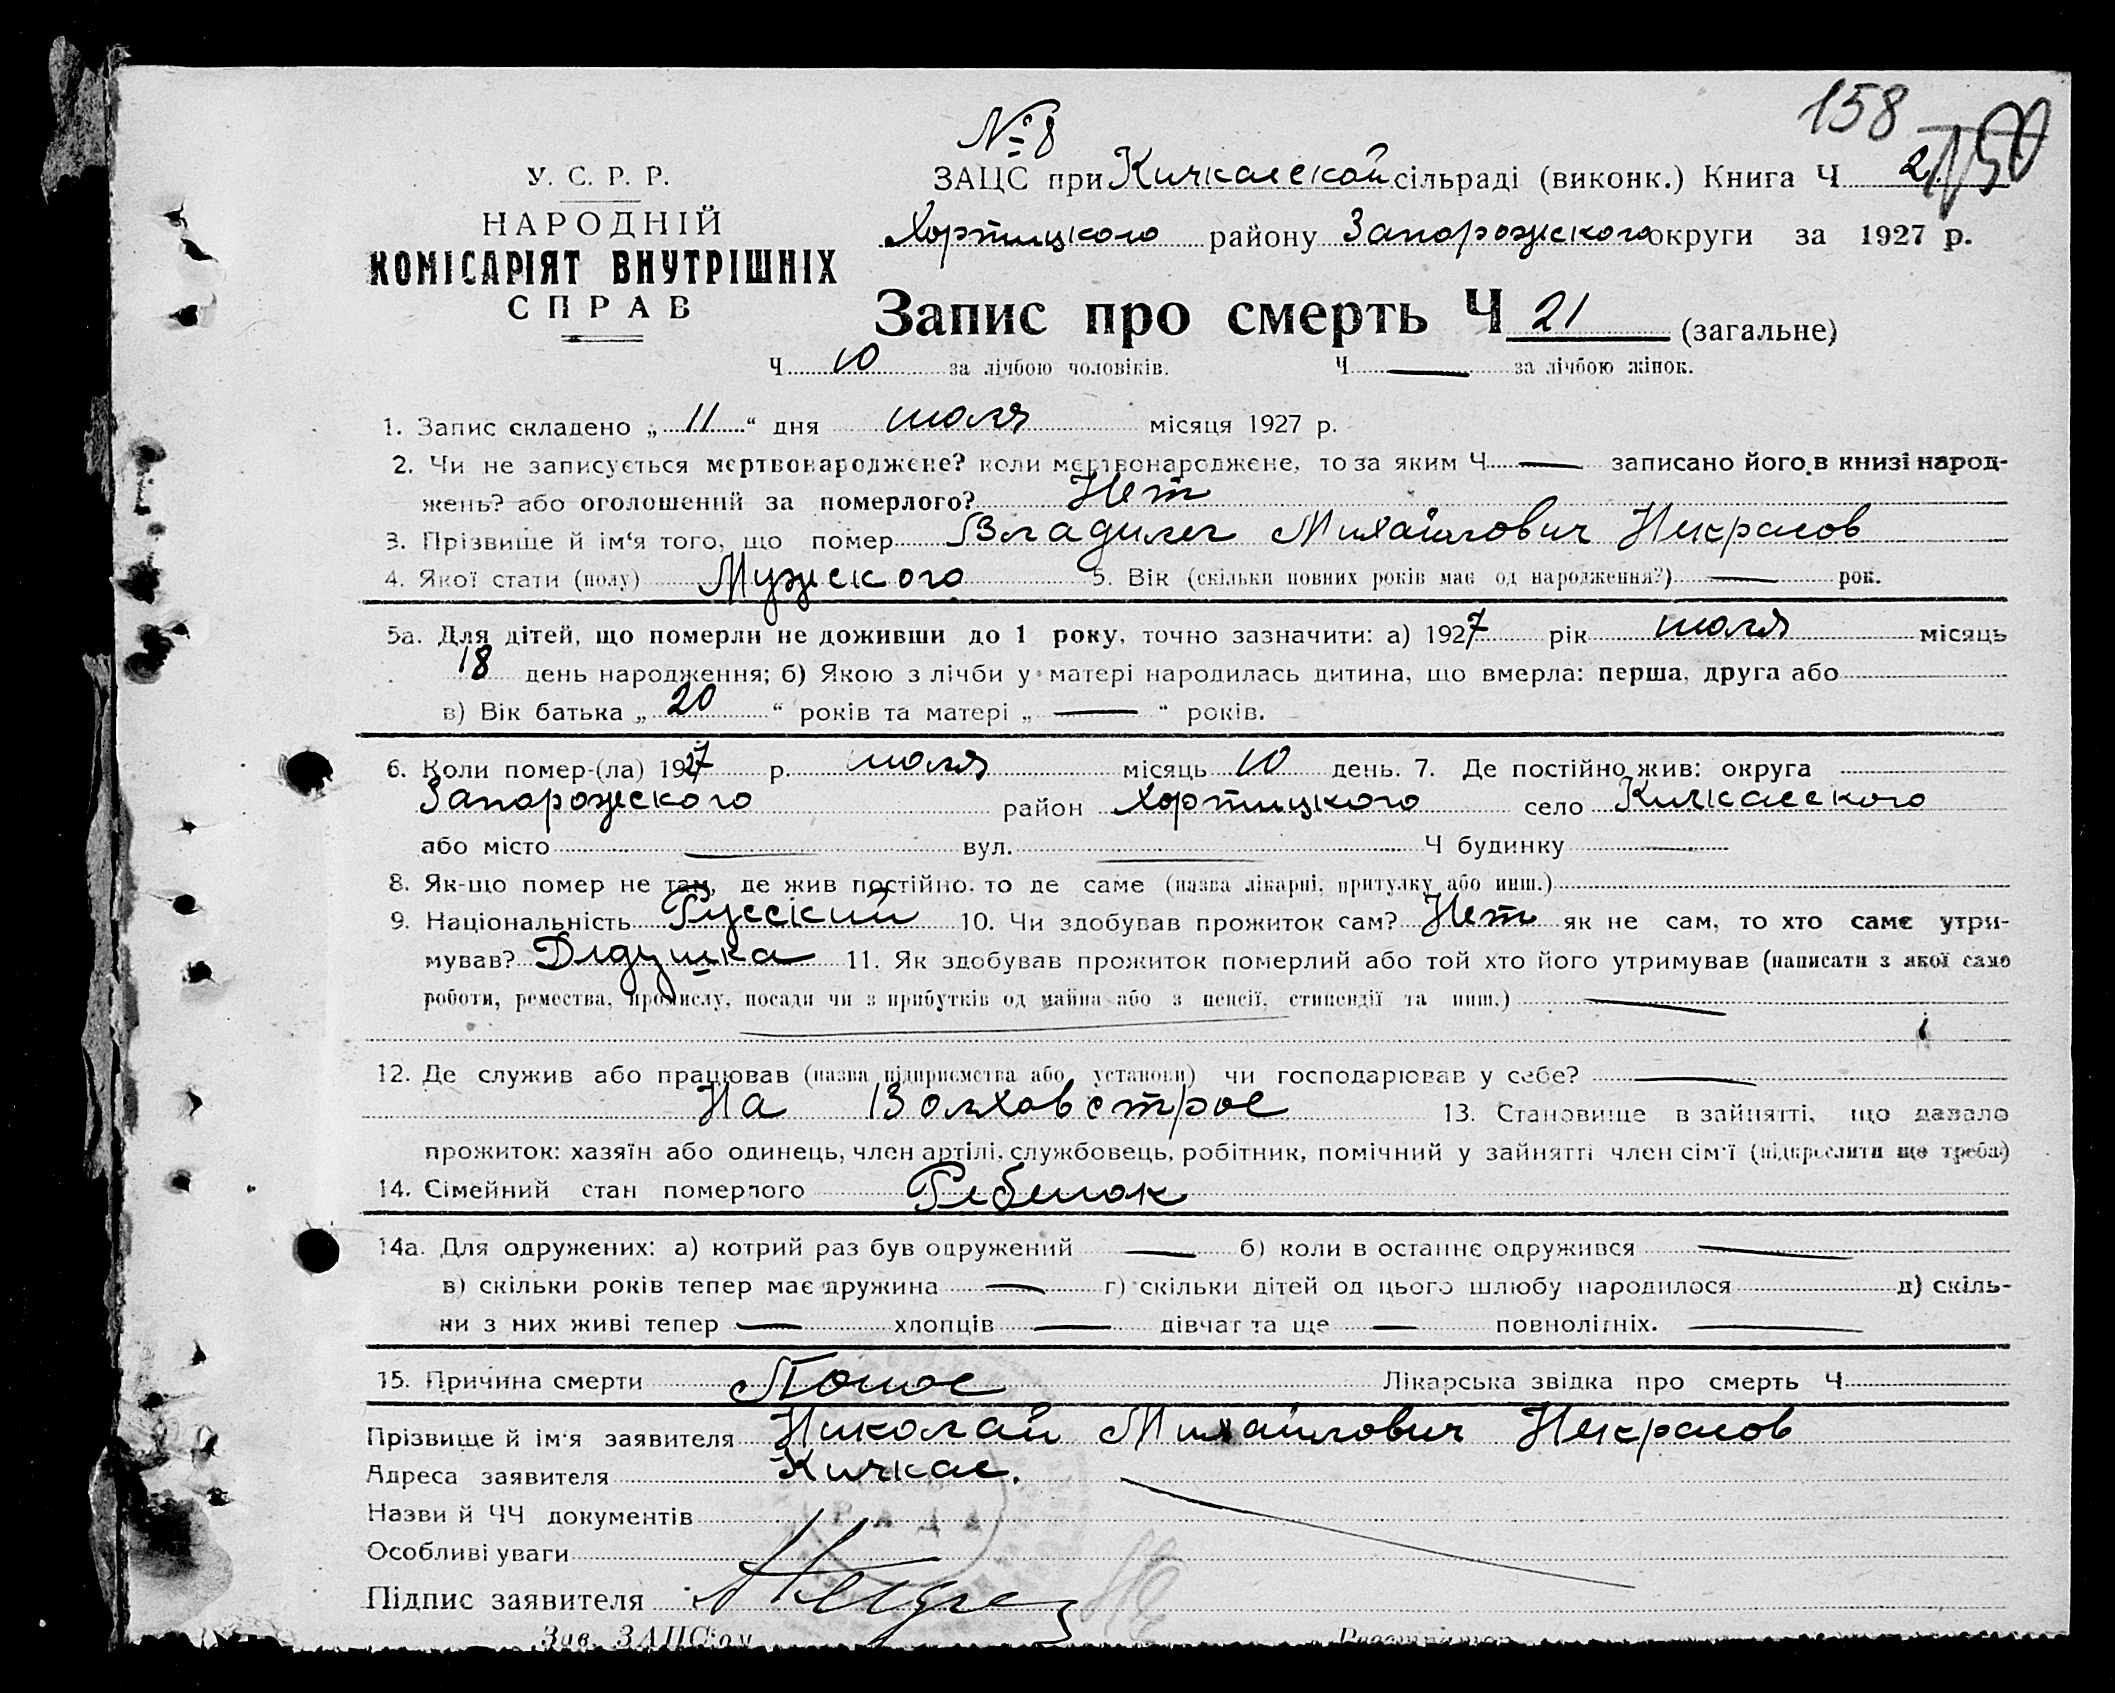 158
№ 8
У. С. Р. Р.
ЗАЦС при Кичкасской сільраді (виконк.) Книга Ч 2 150
НАРОДНІЙ
Хортицкого району Запорожского округи за 1927 р.
КОМІСАРІЯТ ВНУТРІШНІХ
СПРАВ
Запис про смерть Ч 21 (загальне)
Ч 10 за лічбою чоловіків. Ч — за лічбою жінок.
1. Запис складено „ 11 “ дня июля місяця 1927 р.
2. Чи не записується мертвонароджене? коли мертвонароджене, то за яким Ч — записано його в книзі народ-
жень? або оголошений за померлого? Нет
3. Прізвище й ім'я того, що помер Владилен Михайлович Некрасов
4. Якої стати (полу) Мужеского 5. Вік (скільки повних років має од народження?) — рок.
5а. Для дітей, що померли не доживши до 1 року, точно зазначити: а) 1927 рік июля місяць
18 день народження; б) Якою з лічби у матері народилась дитина, що вмерла: перша, друга або
в) Вік батька „ 20 “ років та матері „ — “ років.
6. Коли помер-(ла) 1927 р. июля місяць 10 день. 7. Де постійно жив: округа
Запорожского район Хортицкого село Кичкасского
або місто — вул. — Ч будинку —
8. Як-що помер не там, де жив постійно, то де саме (назва лікарні, притулку або инш.)
9. Національність Русский 10. Чи здобував прожиток сам? Нет як не сам, то хто саме утри-
мував? Дедушка 11. Як здобував прожиток померлий або той хто його утримував (написати з якої саме
роботи, ремества, промислу, посади чи з прибутків од майна або з пенсії, стипендії та инш.) —
12. Де служив або працював (назва підприємства або установи) чи господарював у себе? —
На Волховстрое 13. Становище в зайнятті, що давало
прожиток: хазяїн або одинець, член артілі, службовець, робітник, помічний у зайнятті член сім'ї (підкреслити що треба)
14. Сімейний стан померлого Ребенок
14а. Для одружених: а) котрий раз був одружений — б) коли в останнє одружився —
в) скільки років тепер має дружина — г) скільки дітей од цього шлюбу народилося д) скіль-
ки з них живі тепер — хлопців — дівчат та ще — повнолітніх. —
15. Причина смерти Понос Лікарська звідка про смерть Ч
Прізвище й ім'я заявителя Николай Михайлович Некрасов
Адреса заявителя Кичкас.
Назви й ЧЧ документів
РАДА
Особливі уваги
Підпис заявителя
Зав. ЗАЦС'ом